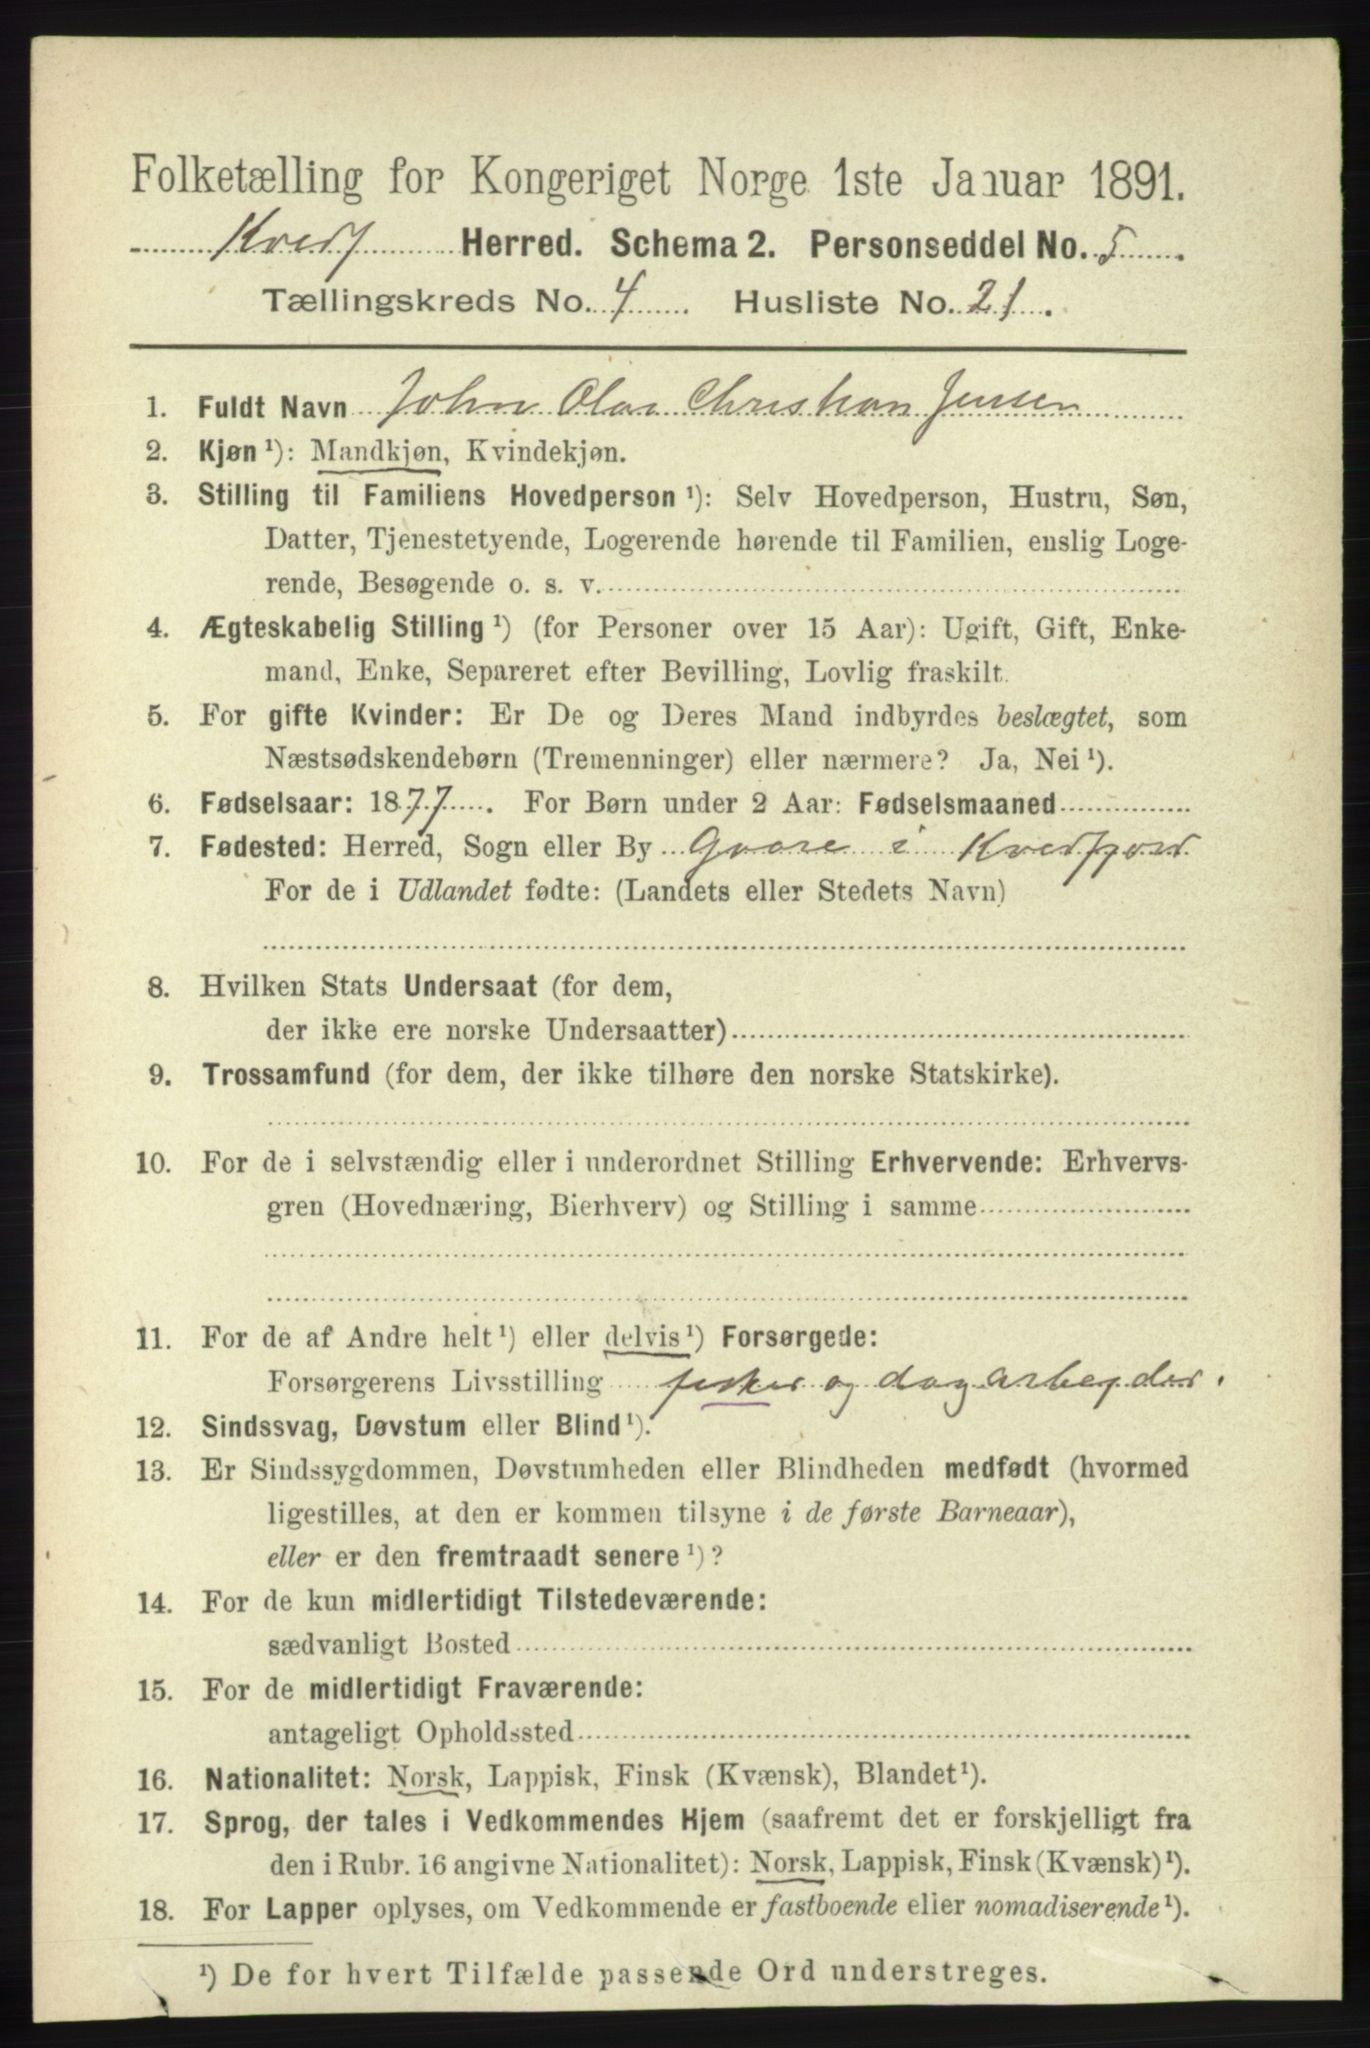 Folketælling for Kongeriget Norge 1ste Januar 1891.
Kvedf Herred. Schema 2. Personseddel No. 5.
Tællingskreds No. 4. Husliste No. 21.
1. Fuldt Navn John Olai Christian Jensen
2. Kjøn ¹): Mandkjøn, Kvindekjøn.
3. Stilling til Familiens Hovedperson ¹): Selv Hovedperson, Hustru, Søn,
Datter, Tjenestetyende, Logerende hørende til Familien, enslig Loge-
rende, Besøgende o. s. v.
4. Ægteskabelig Stilling ¹) (for Personer over 15 Aar): Ugift, Gift, Enke-
mand, Enke, Separeret efter Bevilling, Lovlig fraskilt.
5. For gifte Kvinder: Er De og Deres Mand indbyrdes beslægtet, som
Næstsødskendebørn (Tremenninger) eller nærmere? Ja, Nei ¹).
6. Fødselsaar: 1877. For Børn under 2 Aar: Fødselsmaaned
7. Fødested: Herred, Sogn eller By i Kvedfjord
For de i Udlandet fødte: (Landets eller Stedets Navn)
8. Hvilken Stats Undersaat (for dem,
der ikke ere norske Undersaatter)
9. Trossamfund (for dem, der ikke tilhøre den norske Statskirke).
10. For de i selvstændig eller i underordnet Stilling Erhvervende: Erhvervs-
gren (Hovednæring, Bierhverv) og Stilling i samme
11. For de af Andre helt ¹) eller delvis ¹) Forsørgede:
Forsørgerens Livsstilling fisker og dagarbeyder.
12. Sindssvag, Døvstum eller Blind ¹).
13. Er Sindssygdommen, Døvstumheden eller Blindheden medfødt (hvormed
ligestilles, at den er kommen tilsyne i de første Barneaar),
eller er den fremtraadt senere ¹)?
14. For de kun midlertidigt Tilstedeværende:
sædvanligt Bosted
15. For de midlertidigt Fraværende:
antageligt Opholdssted
16. Nationalitet: Norsk, Lappisk, Finsk (Kvænsk), Blandet ¹).
17. Sprog, der tales i Vedkommendes Hjem (saafremt det er forskjelligt fra
den i Rubr. 16 angivne Nationalitet): Norsk, Lappisk, Finsk (Kvænsk) ¹).
18. For Lapper oplyses, om Vedkommende er fastboende eller nomadiserende ¹).
¹) De for hvert Tilfælde passende Ord understreges.